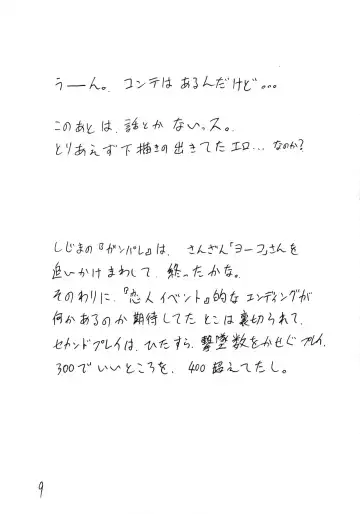 うーーん。コンテは あるんだけど...
このあとは、話とか ないっス。
とりあえず下描きの出きてたエロ... なのか?
しじまの『ガンパレ』は、さんざん「ヨーコ」さんを
追いかけまわして、終ったかな。
そのわりに、『恋人イベント』的な エンディングが
何かあるのか期待してた とこは裏切られて、
セカンドプレイは、ひたすら、撃墜数をかせぐプレイ、
300でいいところを、400超えてたし。
9